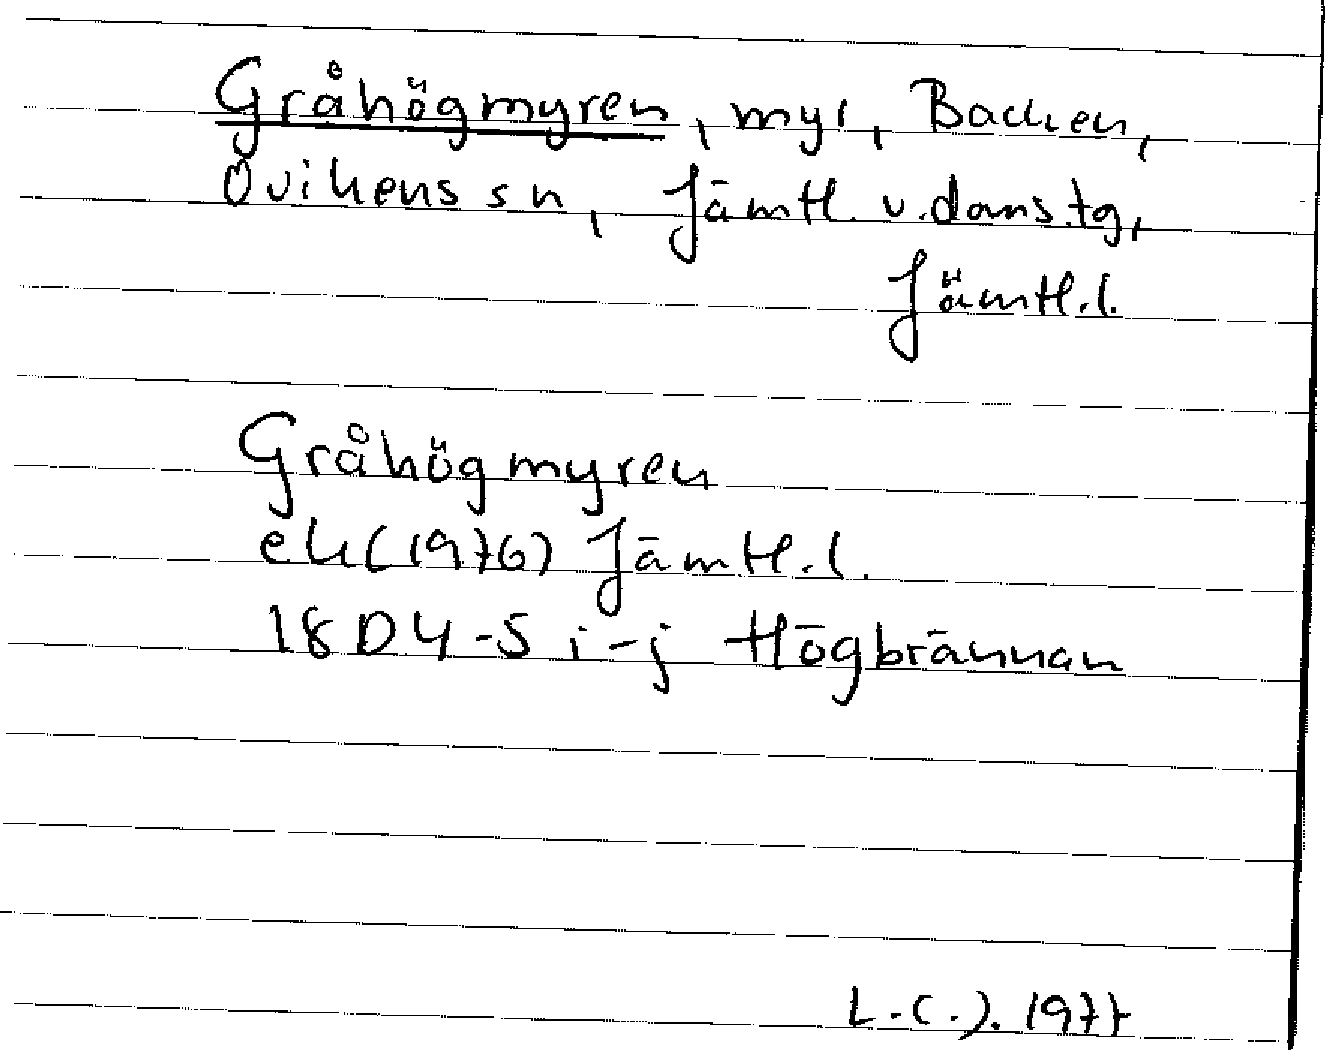 Gråhögmyren, myr, Backen,
Ovikens sn, Jämtl. v. doms. tg,
Jämtl. l.
Gråhögmyren
ek (1976) Jämtl. l.
18 D 4-5 i-j Högbrännan
L.C.J. 1977